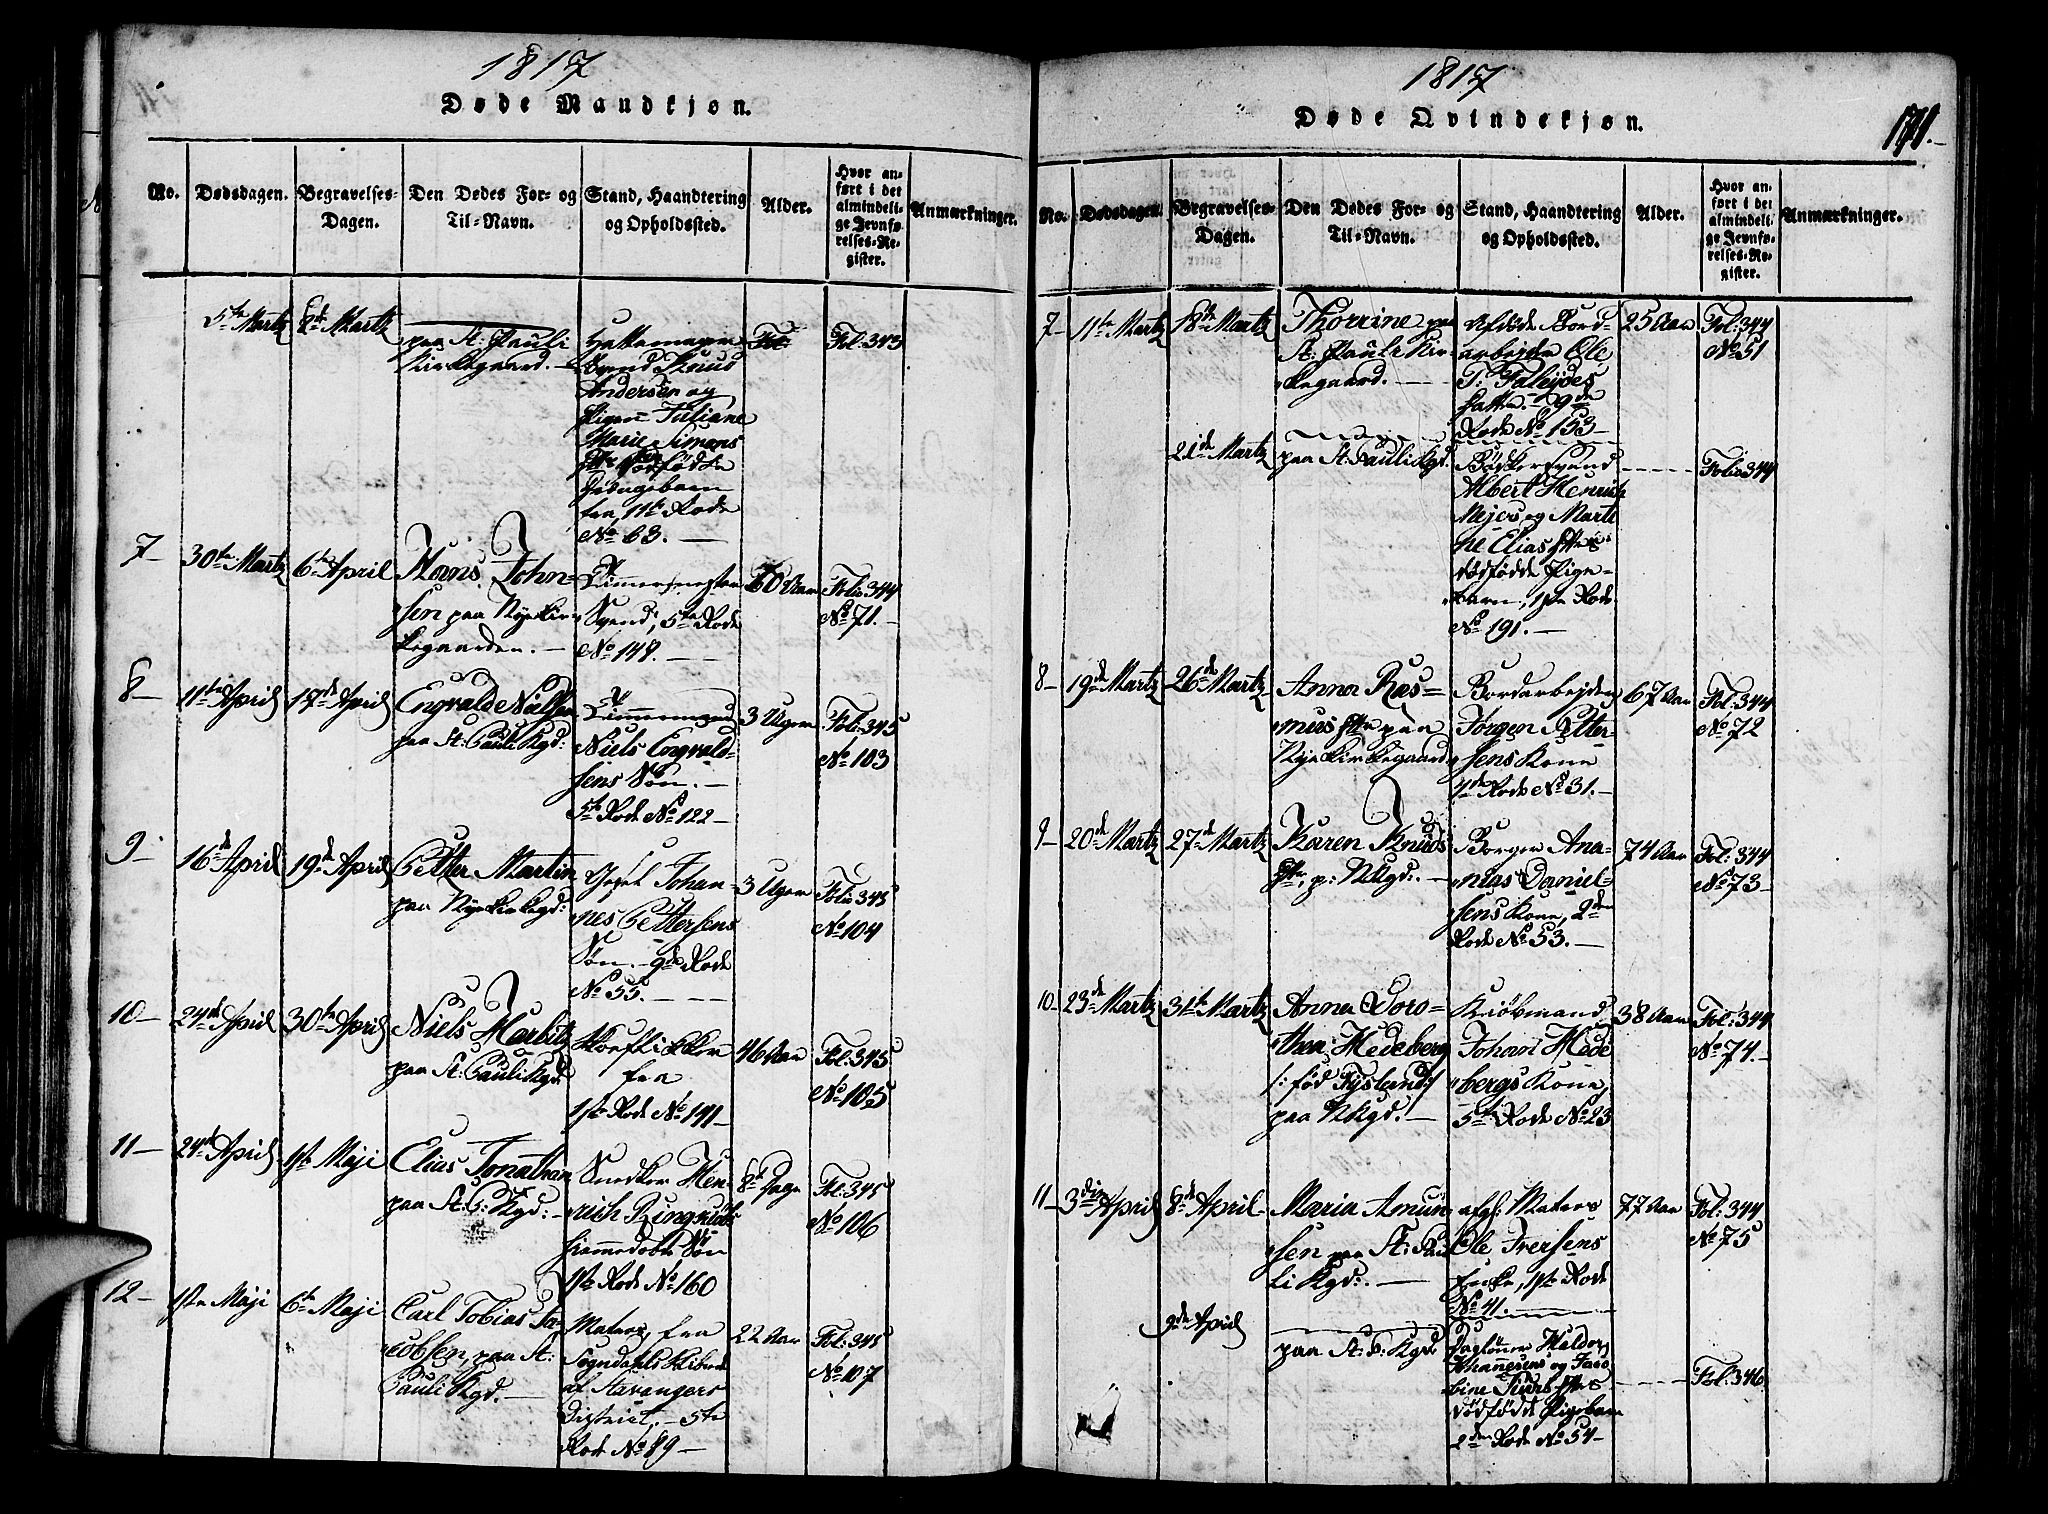 1817
Døde Mandkjøn.
No.
Dødsdagen.
Begravelses-
Dagen.
Den Dødes For- og
Til-Navn.
Stand, Haandtering
og Opholdssted.
Alder.
Hvor an-
ført i det
almindeli-
ge Jevnfø-
relses-Re-
gister.
Anmærkninger.
5te Martz
8de Martz
paa St: Pauli
Kirkegaard. —
Svend Knud
Andersen og
Pigen Juliane
Marie Simons
dødfødte
Drengebarn
fra 11te Rode
No 63. —
Fol: 343
7 —
30te Martz
6te April
Hans John-
sen paa Nyekir-
kegaarden. —
Tømmermester
Svend, 5te Rode
No 148. —
60 Aar
Folio 344
No 71. —
8 —
11te April
17de April
Engvald Nielsen
paa St: Pauli Kgd:
Tømmermand
Niels Engvald-
sens Søn. —
5te Rode No 122 —
3 Uger
Fol: 345
No 103
9 —
16de April
19de April
Petter Martin
paa Nyekirkegd:
Johan-
nes Pettersens
Søn. — 9de Rode
No 55. —
3 Uger
Folio 345
No 104
10 —
24de April
30te April
Niels
paa St: Pauli Kgd:
fra
1ste Rode No 191 —
46 Aar
Fol: 345
No 105
11 —
24de April
1ste Maji
Elias Jonathan
paa St: P: Kgd: —
Snedker Hen-
rich
Søn
1ste Rode No 160
8te Dage
Fol: 345
No 106
12 —
1ste Maji
6te Maji
Carl Tobias Ja-
cobsen, paa St:
Pauli Kgd. —
Matros, fra
Sogndahls Skibrede
af Stavangers
District. — 5te
Rode No 89 —
22 Aar
Fol: 345
No 107
1817
Døde Qvindekjøn.
171. —
No.
Dødsdagen.
Begravelses-
Dagen.
Den Dødes For- og
Til-Navn.
Stand, Haandtering
og Opholdssted.
Alder.
Hvor an-
ført i det
almindeli-
ge Jevnfø-
relses-Re-
gister.
Anmærkninger.
7 —
11te Martz
18de Martz
Thorrine paa
St: Pauli Kir-
kegaard. —
Afdøde Bord-
arbejder Ole
T:
Datter. — 9de
Rode No 153 —
25 Aar
Fol: 344
No 51
21de Martz
paa St: Pauli Kgd.
Bødkersvend
Albert Henrich
Mejers og Marti
ne Elias dtters
dødfødde Pige-
barn, 1ste Rode
No 191. —
Folio 344
8 —
19de Martz
26de Martz
Anna Ras-
mus dtter paa
Nyekirkegaard
Bordarbejder
Jørgen Petter-
sens Kone
4de Rode No 31. —
67 Aar
Fol: 344
No 72
9 —
20de Martz
27de Martz
Karen Knuds
dtr, p: NKgd: —
Borger Ana-
nias Daniel-
sens Kone, 2den
Rode No 53. —
74 Aar
Fol: 344
No 73 —
10 —
23de Martz
31te Martz
Anna Doro-
thea Hedeberg
/: fød Tysland:/
paa NKgd. —
Kiøbmand
Johan Hede
bergs Kone,
5te Rode No 23
38 Aar
Fol: 344
No 74. —
11 —
3die April
8de April
Maria Amun
sen paa St: Pau
li Kgd: —
afg: Matros
Ole Iversens
Enke, 1ste Rode
No 41. —
77 Aar
Fol: 344
No 75
9de April
paa St: P: Kgd
Dagløner Haldor
Johannesens og Jaco
bine dtters
dødfødt Pigebarn
2den Rode No 54 —
Fol: 346